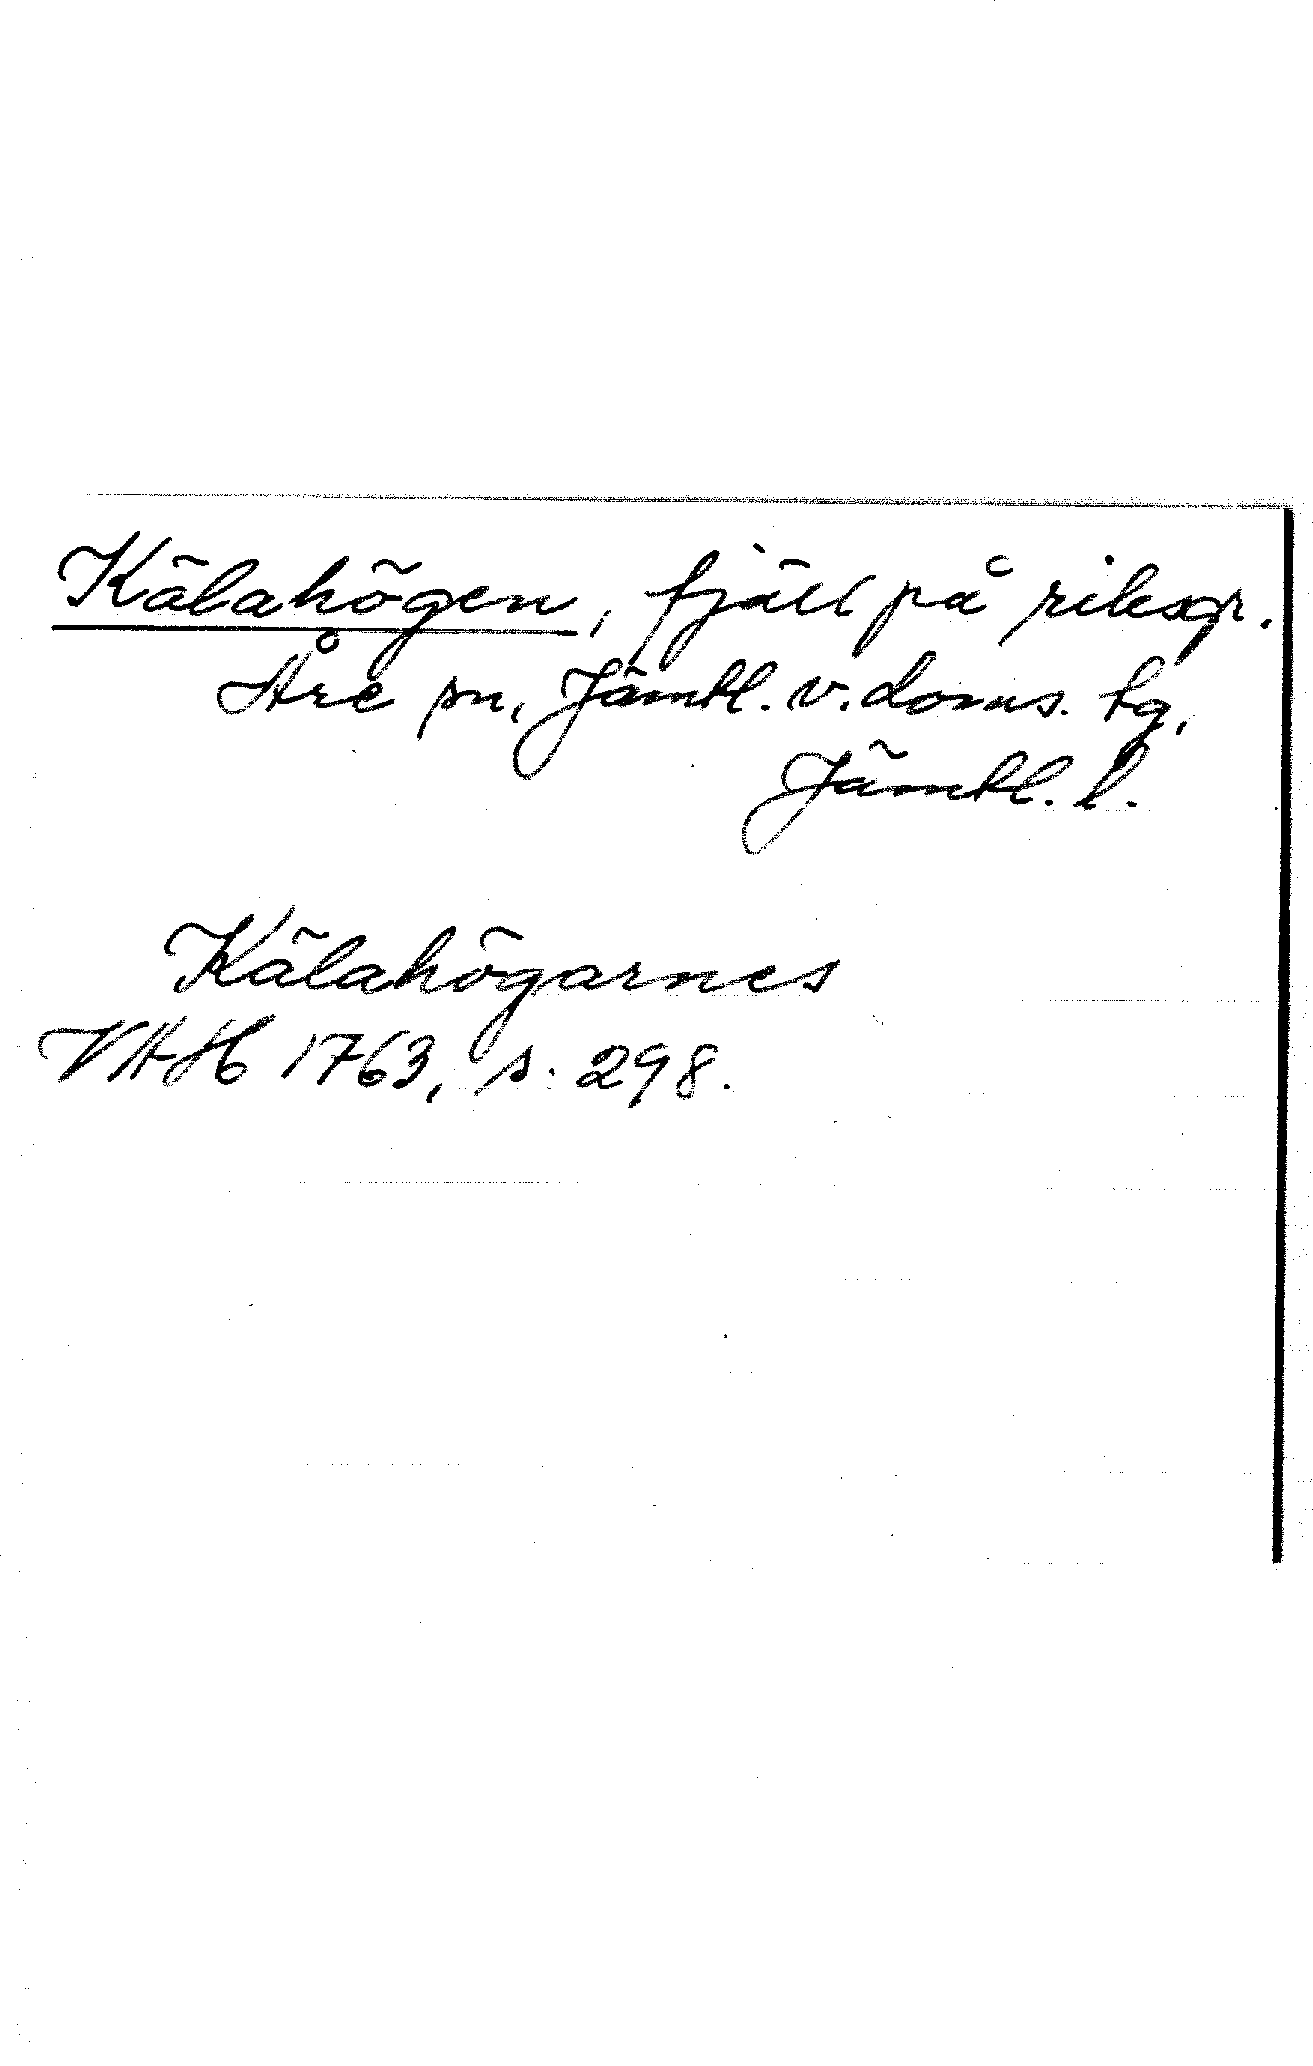 Kälahögen, fjäll på riksgr.
Åre sn, Jämtl. v. doms. tg,
Jämtl. l.
Kälahögarnes
VAH 1763, s. 298.